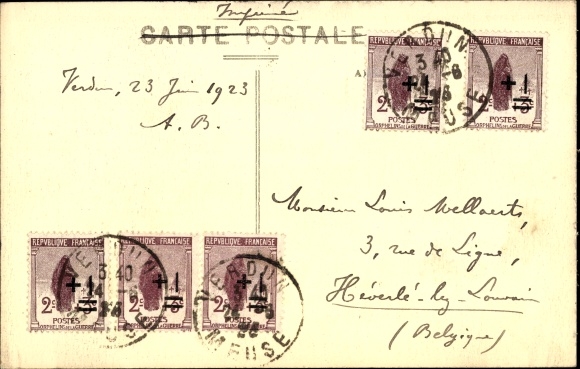 Imprimé
CARTE POSTALE
VERDUN
3 40
MEUSE
REPVBLIQVE FRANÇAISE
+1
2c
POSTES
ORPHELINS DE LA GUERRE
REPVBLIQVE FRANÇAISE
+1
2c
POSTES
ORPHELINS DE LA GUERRE
Verdun, 23 Juin 1923
A. B.
Monsieur Louis Mellaerts,
3, rue de Ligne,
Héverlé-lez-Louvain
(Belgique)
REPVBLIQVE FRANÇAISE
+1
2c
POSTES
ORPHELINS DE LA GUERRE
REPVBLIQVE FRANÇAISE
+1
2c
POSTES
ORPHELINS DE LA GUERRE
REPVBLIQVE FRANÇAISE
+1
2c
POSTES
ORPHELINS DE LA GUERRE
VERDUN
3 40
MEUSE
VERDUN
MEUSE